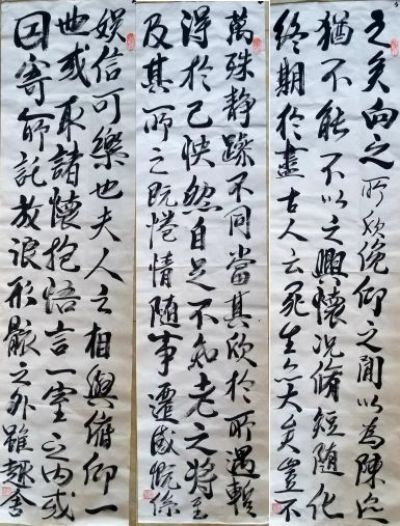 娛信可樂也夫人之相與俯仰一
世或取諸懷抱悟言一室之内或
因寄所託放浪形骸之外雖趣舍
萬殊静躁不同當其欣於所遇暫
得於己怏然自足不知老之將至
及其所之既惓情隨事遷感慨係
之矣向之所欣俛仰之間以為陳迹
猶不能不以之興懷況脩短隨化
終期於盡古人云死生亦大矣豈不